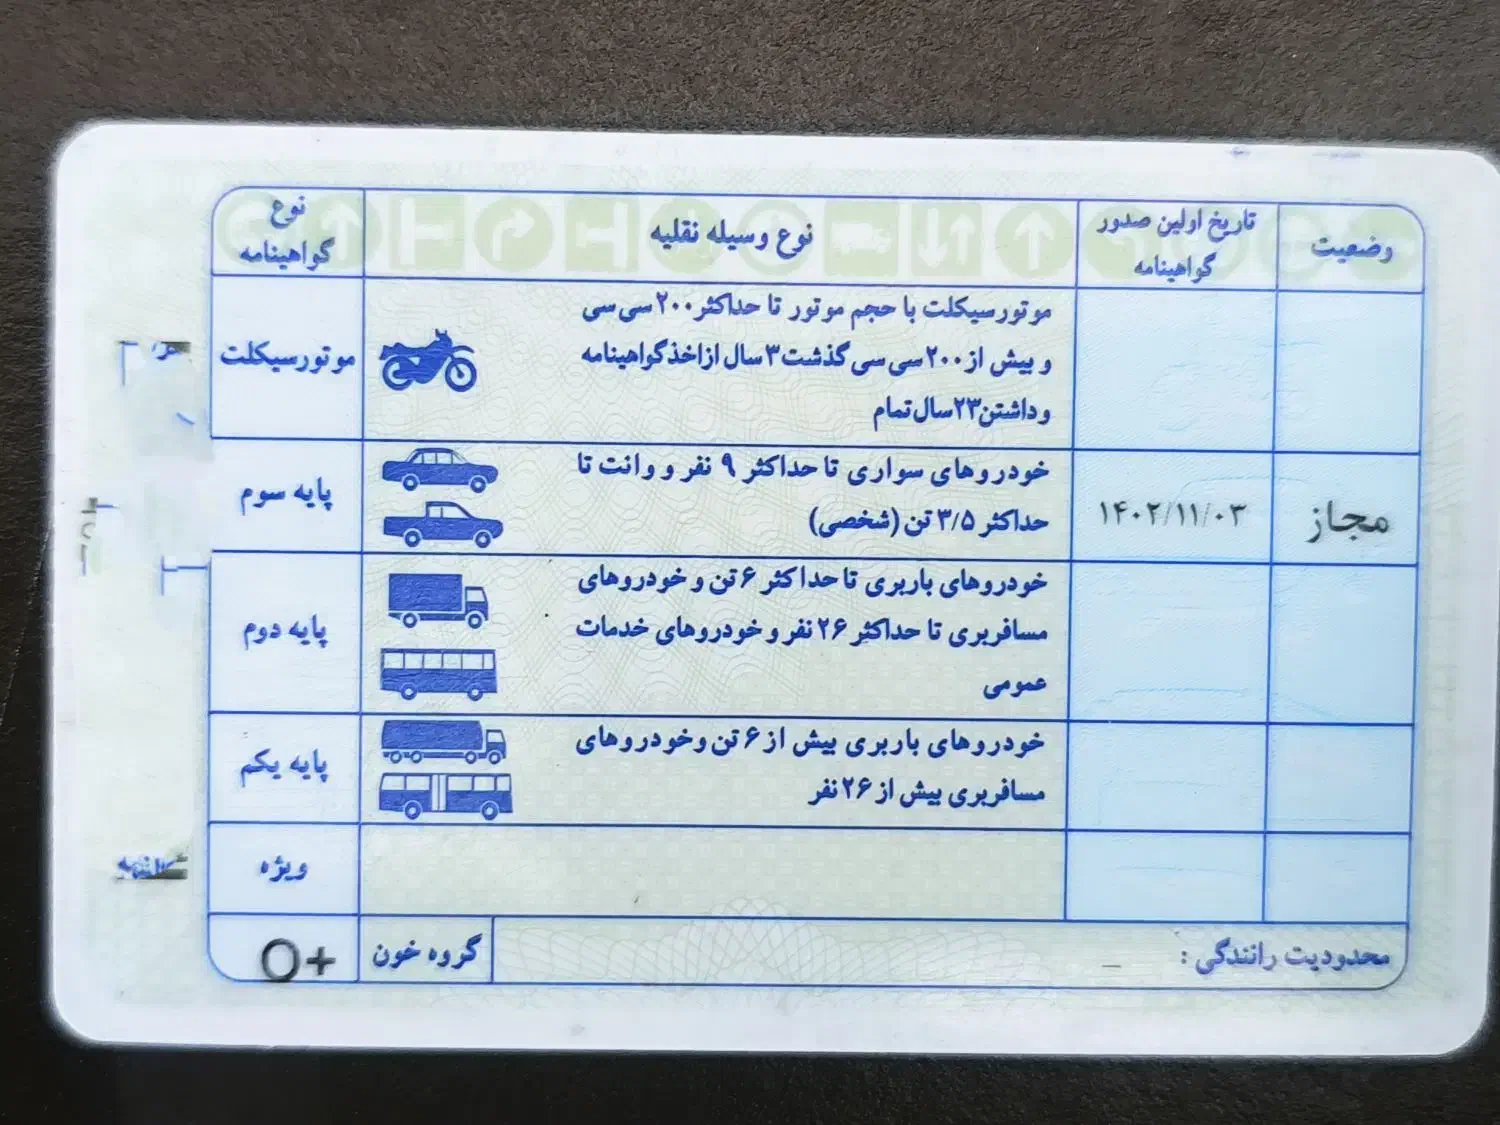 وضعیت
تاریخ اولین صدور
گواهینامه
نوع وسیله نقلیه
نوع
گواهینامه
موتورسیکلت با حجم موتور تا حداکثر ۲۰۰ سی سی
و بیش از ۲۰۰ سی سی گذشت ۳ سال از اخذ گواهینامه
و داشتن ۲۳ سال تمام
موتورسیکلت
مجاز
۱۴۰۲/۱۱/۰۳
خودروهای سواری تا حداکثر ۹ نفر و وانت تا
حداکثر ۳/۵ تن (شخصی)
پایه سوم
خودروهای باربری تا حداکثر ۶ تن و خودروهای
مسافربری تا حداکثر ۲۶ نفر و خودروهای خدمات
عمومی
پایه دوم
خودروهای باربری بیش از ۶ تن و خودروهای
مسافربری بیش از ۲۶ نفر
پایه یکم
ویژه
محدودیت رانندگی : _
گروه خون
O+